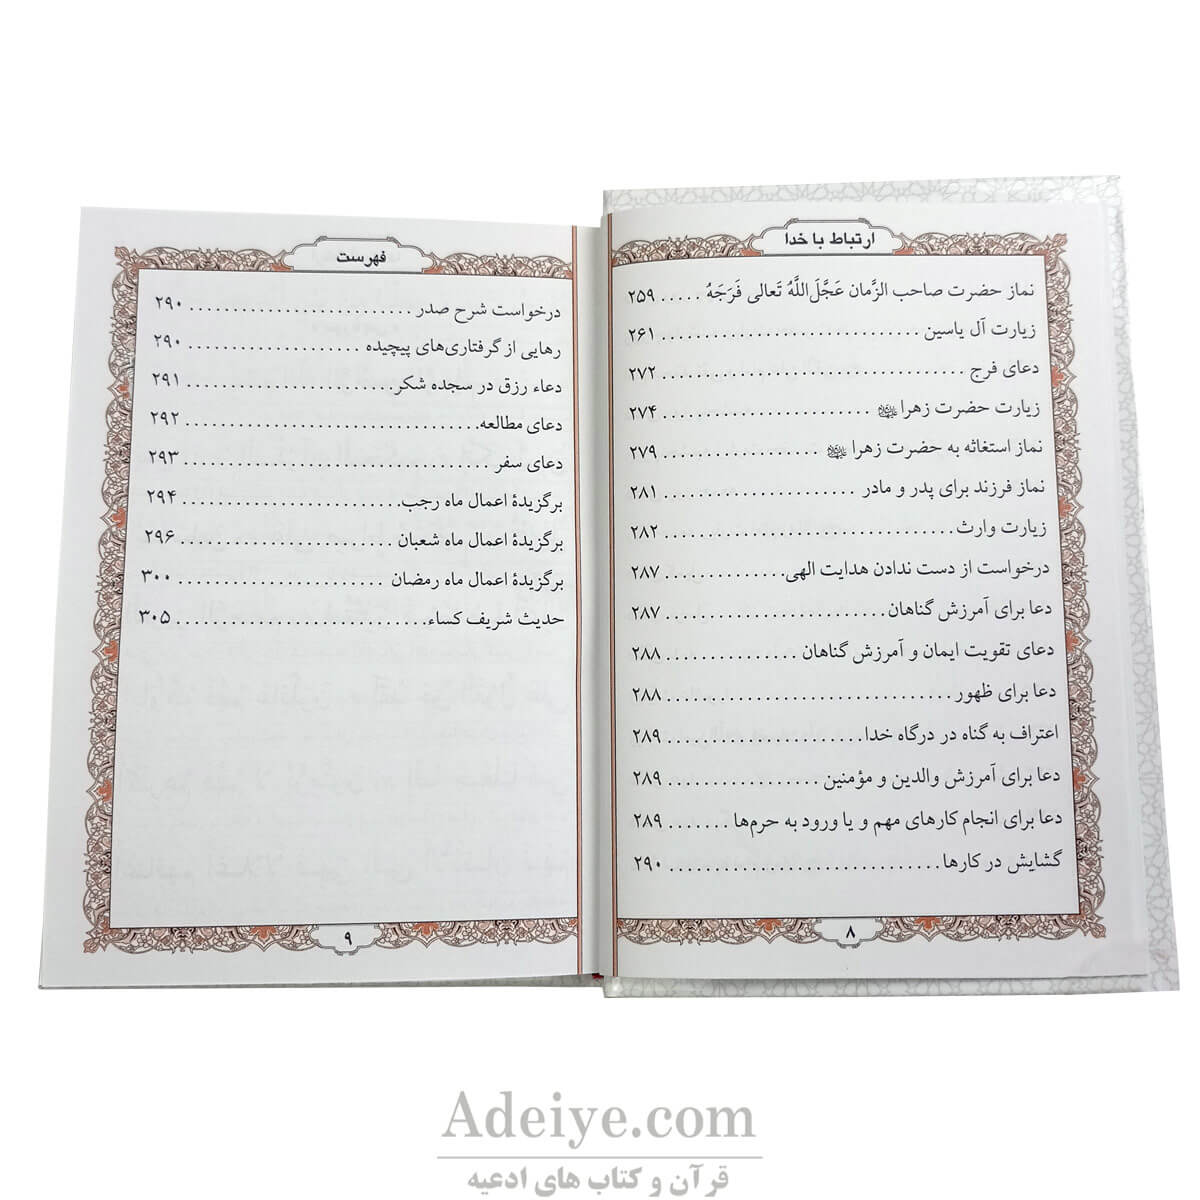 ارتباط با خدا
نماز حضرت صاحب الزّمان عَجَّلَ‌اللَّهُ تَعالی فَرَجَهُ ..... ۲۵۹
زیارت آل یاسین ............................ ۲۶۱
دعای فرج ................................ ۲۷۲
زیارت حضرت زهرا علیهاالسلام ........................ ۲۷۴
نماز استغاثه به حضرت زهرا علیهاالسلام .................. ۲۷۹
نماز فرزند برای پدر و مادر ...................... ۲۸۱
زیارت وارث ............................... ۲۸۲
درخواست از دست ندادن هدایت الهی............. ۲۸۷
دعا برای آمرزش گناهان ....................... ۲۸۷
دعای تقویت ایمان و آمرزش گناهان ............... ۲۸۸
دعا برای ظهور ............................. ۲۸۸
اعتراف به گناه در درگاه خدا...................... ۲۸۹
دعا برای آمرزش والدین و مؤمنین ................. ۲۸۹
دعا برای انجام کارهای مهم و یا ورود به حرم‌ها ....... ۲۸۹
گشایش در کارها............................. ۲۹۰
۸
فهرست
درخواست شرح صدر .......................... ۲۹۰
رهایی از گرفتاری‌های پیچیده .................... ۲۹۰
دعاء رزق در سجده شکر........................ ۲۹۱
دعای مطالعه................................. ۲۹۲
دعای سفر ................................... ۲۹۳
برگزیدهٔ اعمال ماه رجب......................... ۲۹۴
برگزیدهٔ اعمال ماه شعبان ........................ ۲۹۶
برگزیدهٔ اعمال ماه رمضان ........................ ۳۰۰
حدیث شریف کساء............................. ۳۰۵
۹
Adeiye.com
قرآن و کتاب های ادعیه